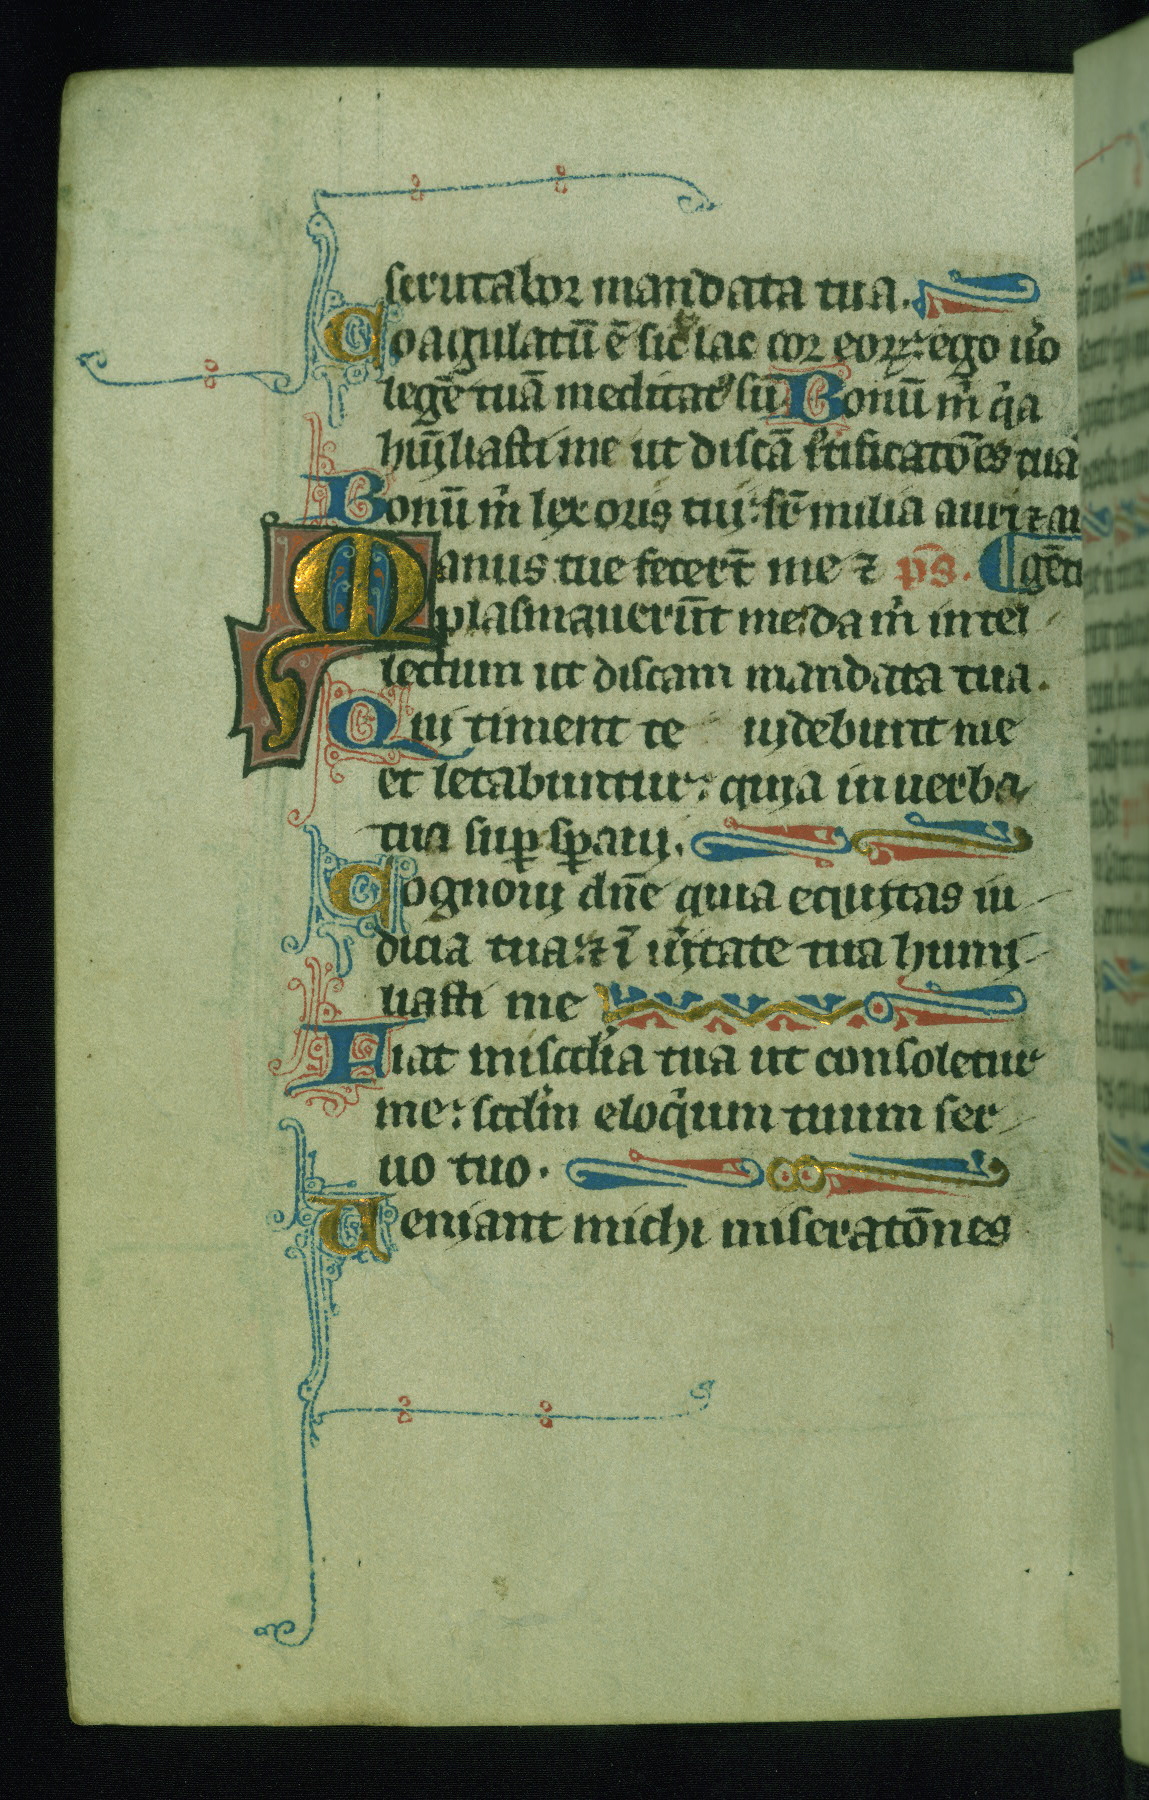 scrutabor mandata tua.
Coagulatū ē sic̄ lac cor eoꝝ: ego ũo
legē tuā meditatꝰ sū Bonū m̃ q̃a
hum̃liasti me ut discā ĩtificatōes tua
Bonū m̃ lex oris tui: sr̄ milia auri ⁊ ar
Manus tue fecerīt me ⁊ ps̄. ¶ gētī
plasmauerūt me: da m̃ intel
lectum ut discam mandata tua.
Qui timent te uidebunt me
et letabuntur: quia in uerba
tua suꝑ sꝑaui.
Cognoui dn̄e quia equitas iu
dicia tua: ⁊ ī ũitate tua humi
liasti me
Fiat mis̄cd̃ia tua ut consoletur
me: scd̃m eloq̃um tuum ser
uo tuo.
Ueniant michi miseratōnes